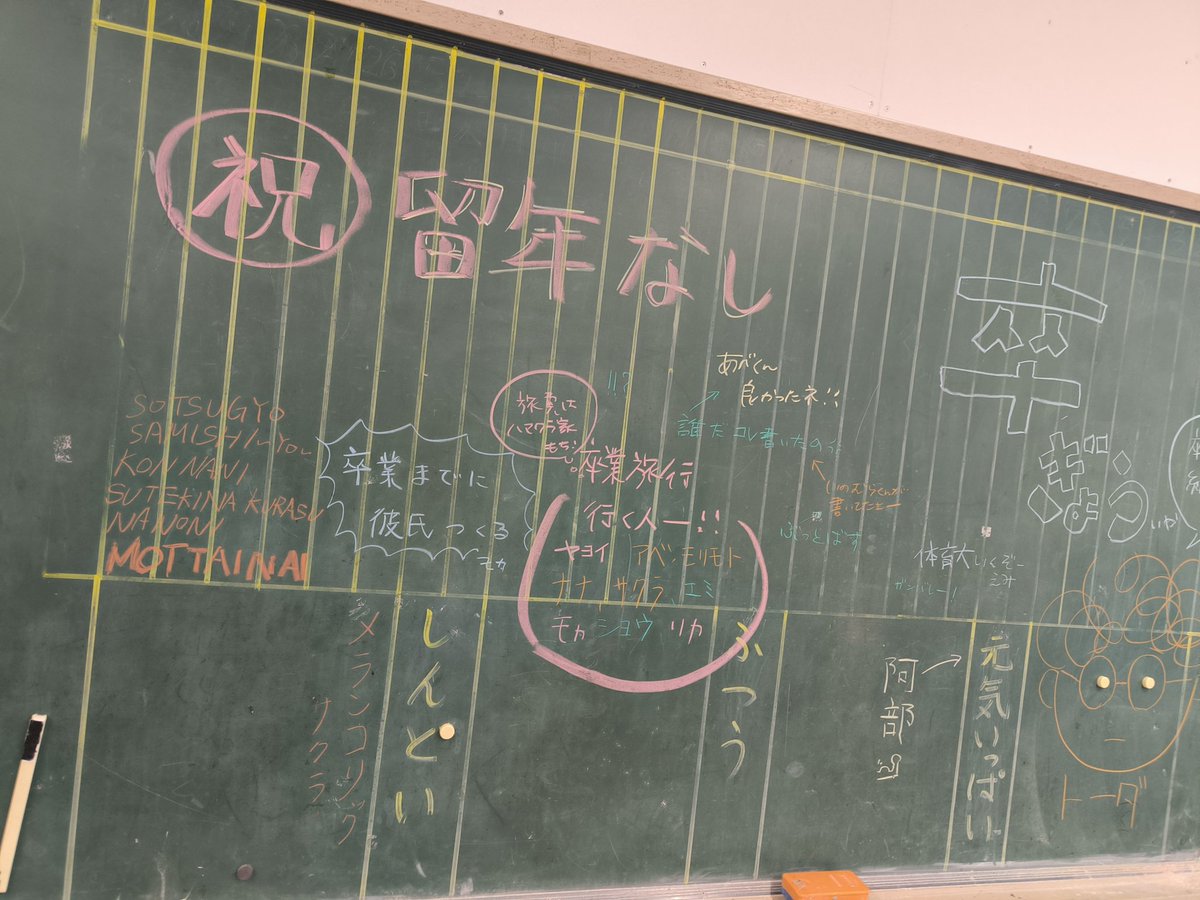 祝 留年なし
SOTSUGYO
SAMISHIIYOU
KONNANI
SUTEKINA KURASU
NANONI
MOTTAINAI
卒業までに
彼氏つくる
モカ
旅費は
ハマクラ家
もち。
!!?
卒業旅行
行く人ー!!
ヤヨイ アベ モリモト
ナナ サクラ エミ
モカ ショウ リカ
あべくん
良かったネ!!
誰だコレ書いたのっ
書いてたよー
ぶっとばす
卒
ぎょう
体育大いくぞー
えみ
ガンバレー!
メランコリック
ナクラ
しんどい
ふつう
阿部
元気いっぱい
トーダ